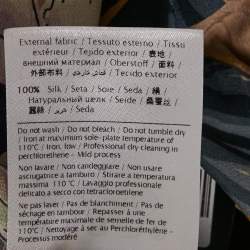 External fabric / Tessuto esterno / Tissu
extérieur / Tejido exterior / 表地 /
внешний материал / Oberstoff / 面料 /
外部布料 / قماش خارجي / Tecido exterior
100% Silk / Seta / Soie / Seda / 絹 /
Натуральный шелк / Seide / 桑蚕丝 /
蠶絲 / حرير / Seda
Do not wash / Do not bleach / Do not tumble dry
/ Iron at maximum sole-plate temperature of
110°C / Iron, low / Professional dry cleaning in
perchloroethene - Mild process
Non lavare / Non candeggiare / Non usare
asciugatore a tamburo / Stirare a temperatura
massima 110°C / Lavaggio professionale
delicato a secco con tetracloroetilene
Ne pas laver / Pas de blanchiment / Pas de
séchage en tambour / Repasser à une
température maximale de semelle de fer de
110°C / Nettoyage à sec au Perchloréthylène -
Processus modéré